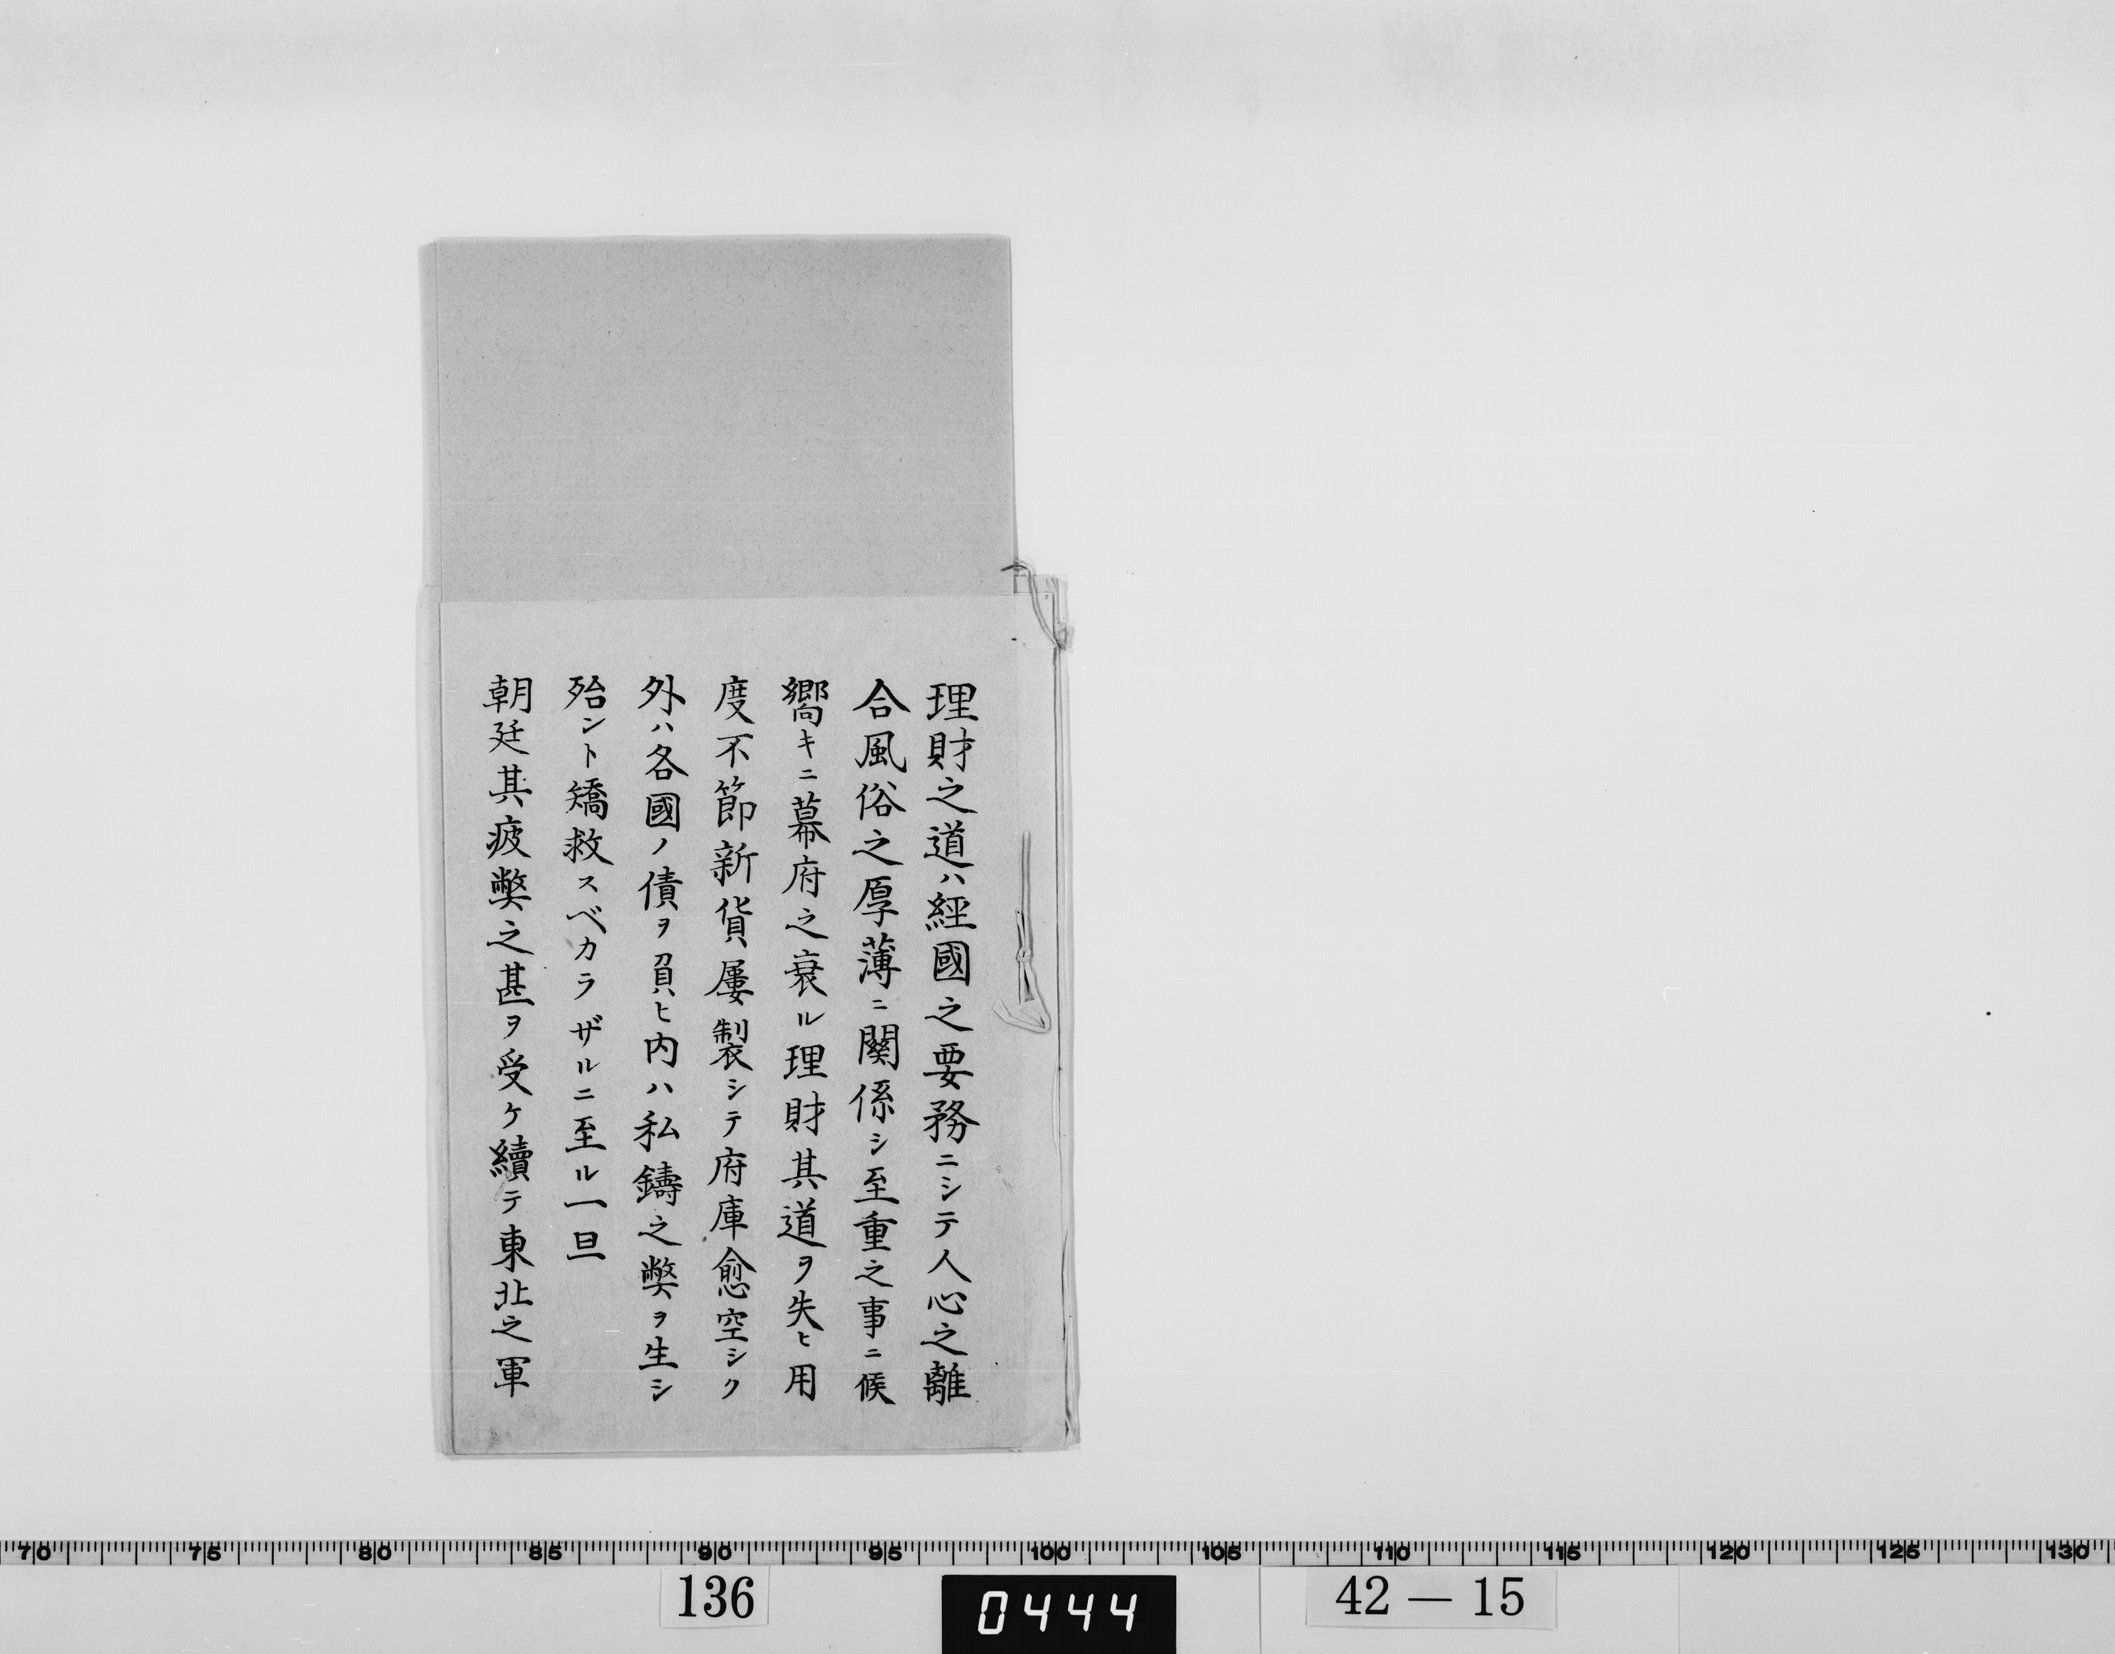 理財之道ハ經國之要務ニシテ人心之離
合風俗之厚薄ニ關係シ至重之事ニ候
嚮キニ幕府之衰ル理財其道ヲ失ヒ用
度不節新貨屡製シテ府庫愈空シク
外ハ各國ノ債ヲ負ヒ内ハ私鑄之弊ヲ生シ
殆ント矯救スベカラザルニ至ル一旦
朝廷其疲弊之甚ヲ受ケ續テ東北之軍
70 75 80 85 90 95 100 105 110 115 120 125 130
136
0444
42－15